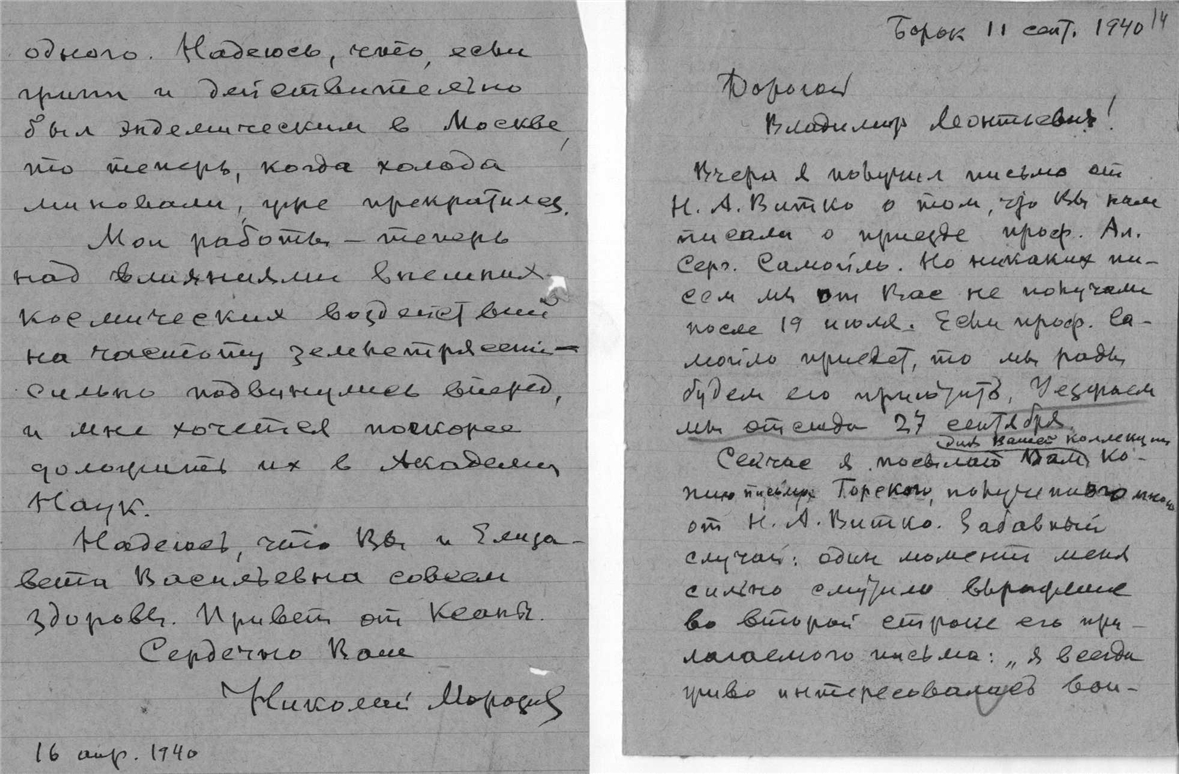 одного. Надеюсь, что, если
грипп и действительно
был эндемическим в Москве,
то теперь, когда холода
миновали, уже прекратился.
Мои работы – теперь
над влияниями внешних
космических воздействий
на частоту землетрясений –
сильно подвинулись вперед,
и мне хочется поскорее
доложить их в Академии
Наук.
Надеюсь, что Вы и Елиза-
вета Васильевна совсем
здоровы. Привет от Ксаны.
Сердечно Ваш
Николай Морозов
16 апр. 1940
Борок 11 сент. 1940
14
Дорогой
Владимир Леонтьевич!
Вчера я получил письмо от
Н. А. Витко о том, что Вы нам
писали о приезде проф. Ал.
Серг. Самойло. Но никаких пи-
сем мы от Вас не получали
после 19 июля. Если проф. Са-
мойло приедет, то мы рады
будем его приютить. Уезжаем
мы отсюда 27 сентября.
для Вашей коллекции
Сейчас я посылаю Вам ко-
пию письма Горского, полученного мною
от Н. А. Витко. Забавный
случай: один момент меня
сильно смутило выражение
во второй строке его при-
лагаемого письма: „я всегда
живо интересовался Вои-